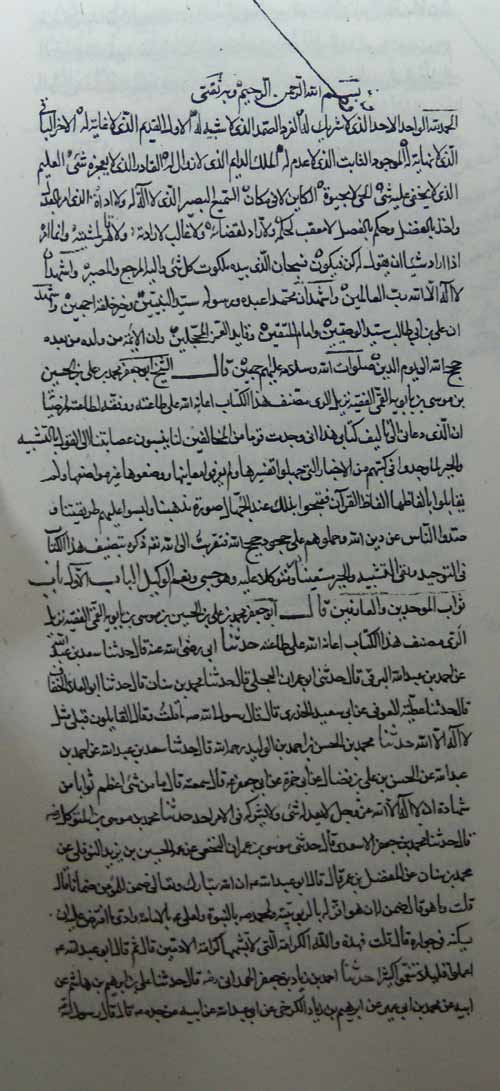 بسم الله الرحمن الرحيم وبه ثقتي
الحمد لله الواحد الاحد الذي لا شريك له الفرد الصمد الذي لا شبيه له الاول القديم الذي لا غاية له الاخر الباقي
الذي لا نهاية له الموجود الثابت الذي لا عدم له الملك الدايم الذي لا زوال له القادر الذي لا يعجزه شئ العليم
الذي لا يخفى عليه شئ الحي لا بحيوة الكاين لا في مكان السميع البصير الذي لا آلة له ولا اداة الذي امر بالعدل
واخذ بالفضل وحكم بالفصل لا معقب لحكمه ولا راد لقضائه ولا غالب لارادته ولا قاهر لمشيته وانما امره
اذا اراد شيئا ان يقول له كن فيكون فسبحان الذي بيده ملكوت كل شئ واليه المرجع والمصير واشهد ان
لا اله الا الله رب العالمين واشهد ان محمدا عبده ورسوله سيد النبيين وخير خلقه اجمعين واشهد
ان علي بن ابي طالب سيد الوصيين وامام المتقين وقايد الغر المحجلين وان الائمة من ولده من بعده
حجج الله الى يوم الدين صلوات الله وسلامه عليهم اجمعين قال الشيخ ابو جعفر محمد بن علي بن الحسين
بن موسى بن بابويه القمي الفقيه نزيل الري مصنف هذا الكتاب اعانه الله على طاعته ووفقه لمرضاته
ان الذي دعاني الى تاليف كتابي هذا اني وجدت قوما من المخالفين لنا ينسبون عصابتنا الى القول بالتشبيه
والجبر لما وجدوا في كتبهم من الاخبار التي جهلوا تفسيرها ولم يعرفوا معانيها ووضعوها في غير مواضعها ولم
يقابلوا بالفاظها الفاظ القرآن فقبحوا بذلك عند الجهال صورة مذهبنا ولبسوا عليهم طريقتنا و
صدوا الناس عن دين الله وحملوهم على جحود حجج الله فتقربت الى الله تقه ذكره بتصنيف هذا الكتاب
في التوحيد ونفي التشبيه والجبر مستعينا به ومتوكلا عليه وهو حسبي ونعم الوكيل الباب الاول باب
ثواب الموحدين والعارفين قال ابو جعفر محمد بن علي بن الحسين بن موسى بن بابويه القمي الفقيه نزيل
الري مصنف هذا الكتاب اعانه الله على طاعته حدثنا ابي رضي الله عنه قال حدثنا سعد بن عبد الله
عن احمد بن عبد الله البرقي قال حدثني ابو عمران العجلي قال حدثنا محمد بن سنان قال حدثنا ابو العلا الخفاف
قال حدثنا عطية العوفي عن ابي سعيد الخدري قال قال رسول الله صه ما قلت ولا قال القايلون قبلي مثل
لا اله الا الله حدثنا محمد بن الحسن بن احمد بن الوليد رحمه الله قال حدثنا سعد بن عبد الله عن احمد بن
عبد الله عن الحسن بن علي بن فضال عن ابي حمزة عن ابي جعفر عه قال سمعته قال ما من شئ اعظم ثوابا من
شهادة ان لا اله الا الله عز وجل لا يعدله شئ ولا يشركه في الامر احد حدثنا محمد بن موسى بن المتوكل رضه
قال حدثنا محمد بن جعفر الاسدي قال حدثني موسى بن عمران النخعي عن عمه الحسين بن يزيد النوفلي عن
محمد بن سنان عن المفضل بن عمر قال قال ابو عبد الله عه ان الله تبارك وتعالى ضمن للمؤمن ضمانا قال
قلت وما هو قال ضمن له ان هو اقر له بالربوبية ولمحمد صه بالنبوة ولعلي عه بالامامة وادى ما افترض عليه ان
يسكنه في جواره قال قلت فهذه والله الكرامة التي لا يشبهها كرامة الادميين قال ثم قال ابو عبد الله عه
اعملوا قليلا تتنعموا كثيرا حدثنا احمد بن زياد بن جعفر الهمداني رضه قال حدثنا علي بن ابراهيم بن هاشم عن
ابيه عن محمد بن ابي عمير عن ابرهيم بن زياد الكرخي عن ابي عبد الله عن ابيه عن جده عه قال قال رسول الله